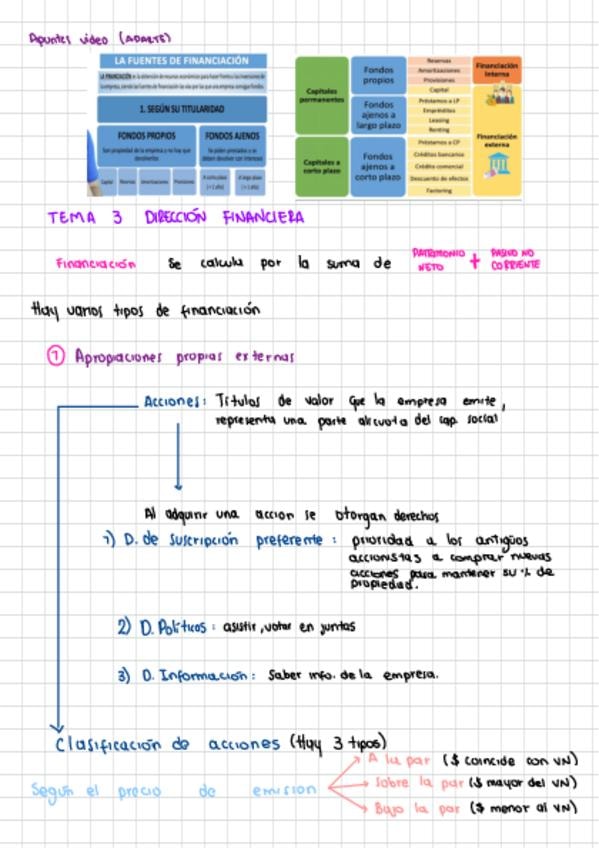 Apuntes video (ADARTE)
LA FUENTES DE FINANCIACIÓN
LA FINANCIACIÓN es la obtención de recursos económicos para hacer frente a las inversiones de
la empresa, siendo las fuentes de financiación las vías por las que una empresa consigue fondos.
1. SEGÚN SU TITULARIDAD
FONDOS PROPIOS
Son propiedad de la empresa y no hay que
devolverlos
FONDOS AJENOS
Se piden prestados y se
deben devolver con intereses
Capital
Reservas
Amortizaciones
Provisiones
A corto plazo
(< 1 año)
A largo plazo
(> 1 año)
Capitales
permanentes
Capitales a
corto plazo
Fondos
propios
Fondos
ajenos a
largo plazo
Fondos
ajenos a
corto plazo
Reservas
Amortizaciones
Provisiones
Capital
Préstamos a LP
Empréstitos
Leasing
Renting
Préstamos a CP
Créditos bancarios
Crédito comercial
Descuento de efectos
Factoring
Financiación
interna
Financiación
externa
TEMA 3 DIRECCIÓN FINANCIERA
Financiación se calcula por la suma de PATRIMONIO NETO + PASIVO NO CORRIENTE
Hay varios tipos de financiación
1 Apropiaciones propias externas
Acciones: Títulos de valor que la empresa emite,
representa una parte alicuota del cap. social
Al adquirir una accion se otorgan derechos
1) D. de suscripción preferente : prioridad a los antigüos
accionistas a comprar nuevas
acciones para mantener su % de
propiedad.
2) D. Políticos : asistir, votar en juntas
3) D. Información : Saber info. de la empresa.
Clasificación de acciones (Hay 3 tipos)
Según el precio de emision
A la par ($ coincide con VN)
Sobre la par ($ mayor del VN)
Bajo la par ($ menor al VN)